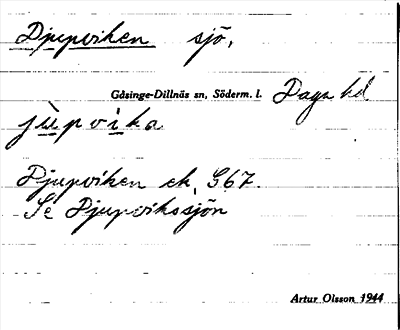 Djupviken sjö,
Gåsinge-Dillnäs sn, Söderm. l. Daga hd
jupvika
Djupviken ek. G67.
Se Djupvikssjön
Artur Olsson 1944